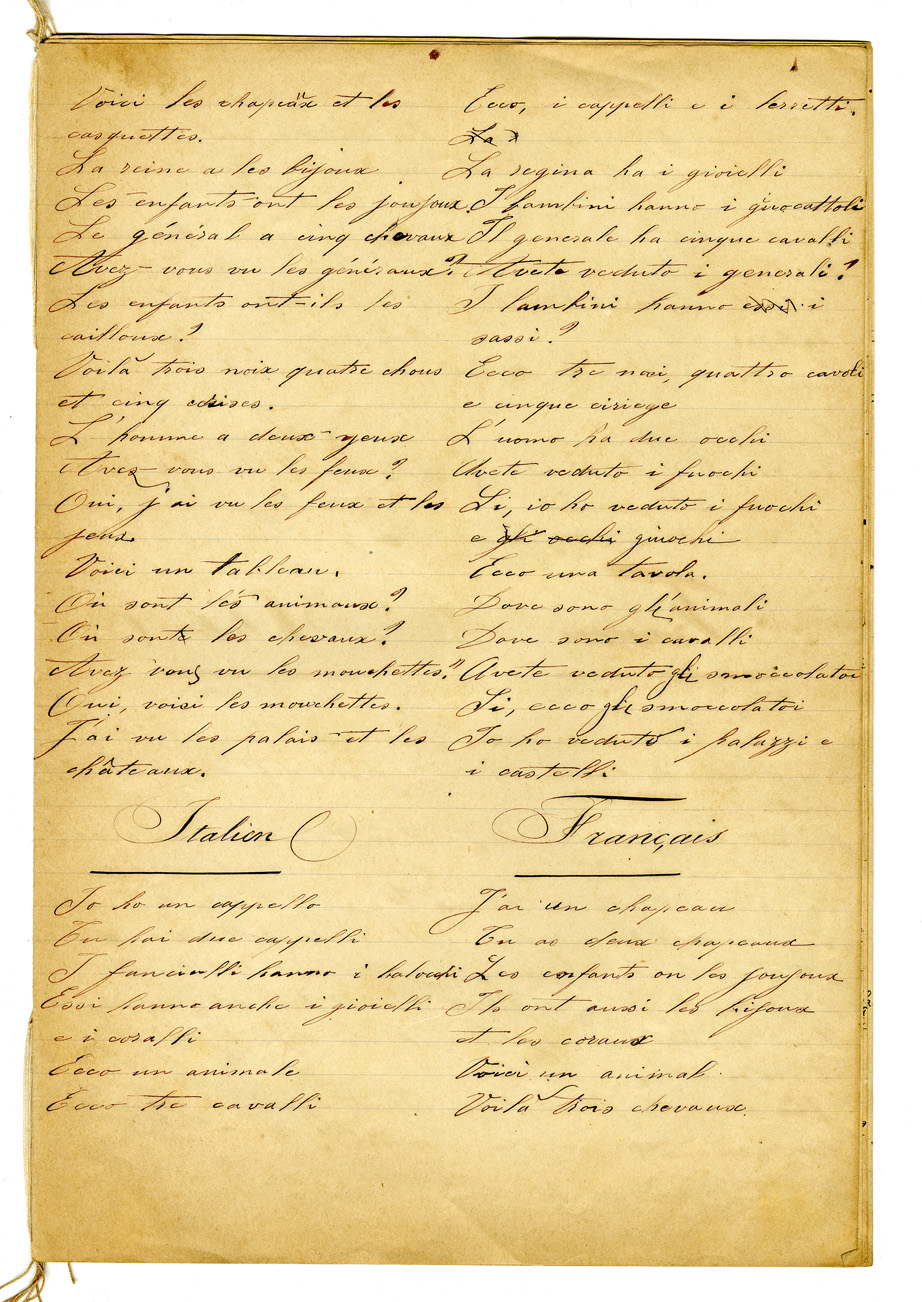 Voici les chapeaux et les
casquettes.
La reine a les bijoux
Les enfants ont les joujoux.
Le général a cinq chevaux
Avez-vous vu les généraux?
Les enfants ont-ils les
cailloux?
Voilà trois noix quatre chous
et cinq cerises.
L'homme a deux yeux
Avez-vous vu les feux?
Oui, j'ai vu les feux et les
jeux.
Voici un tableau.
Où sont les animaux?
Où sont les chevaux?
Avez vous vu les mouchettes?
Oui, voisi les mouchettes.
J'ai vu les palais et les
châteaux.
Ecco, i cappelli e i berretti.
La
La regina ha i gioielli
I bambini hanno i giuocattoli
Il generale ha cinque cavalli
Avete veduto i generali?
I bambini hanno essi i
sassi?
Ecco tre noci, quattro cavoli
e cinque ciriege
L'uomo ha due occhi
Avete veduto i fuochi
Si, io ho veduto i fuochi
e gli occhi giuochi
Ecco una tavola.
Dove sono gli animali
Dove sono i cavalli
Avete veduto gli smoccolatoi
Si, ecco gli smoccolatoi
Io ho veduto i palazzi e
i castelli
Italien
Io ho un cappello
Tu hai due cappelli
I fanciulli hanno i balocchi
Essi hanno anche i gioielli
e i coralli
Ecco un animale
Ecco tre cavalli
Français
J'ai un chapeau
Tu as deux chapeaux
Les enfants on les joujoux
Ils ont aussi les bijoux
et les coraux
Voici un animal.
Voilà trois chevaux.